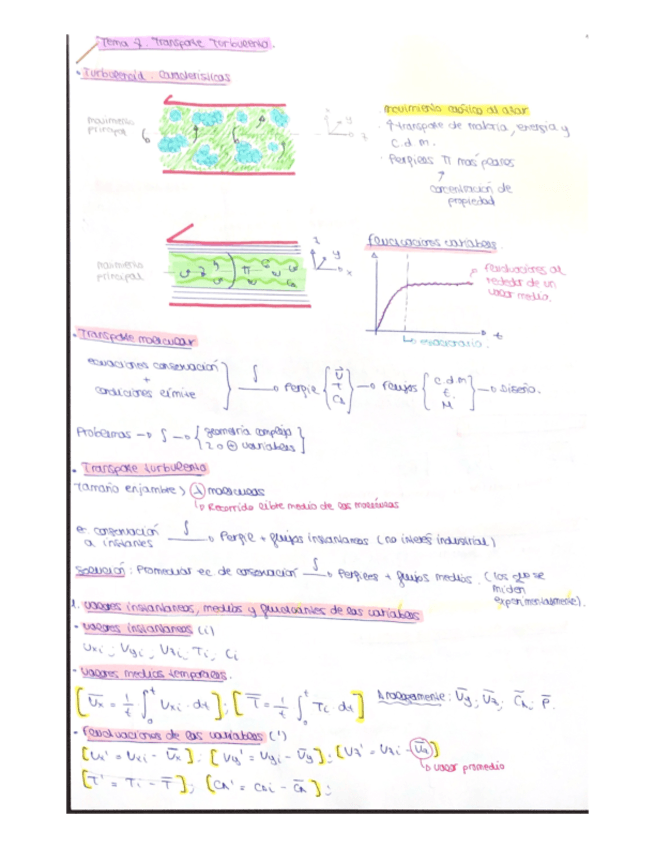 Tema 7. Transporte Turbulento.
• Turbulencia: Características
movimiento
principal
movimiento caótico al azar
· ↑ transporte de materia, energía y
c.d.m.
· Perfiles π más planos
concentración de
propiedad
movimiento
principal
z
y
x
Fluctuaciones variables
fluctuaciones al
rededor de un
valor medio.
t
estacionario.
• Transporte molecular
ecuaciones conservación
+
condiciones límite
∫
Perfil { v T CA } → Flujos { c.d.m E. M } → Diseño.
Problemas → ∫ → { geometría compleja
2 o ⊕ variables }
• Transporte turbulento
Tamaño enjambre > λ moleculas
Recorrido libre medio de las moléculas
ec conservación
a instantes
∫
Perfil + flujos instantáneos (no interés industrial)
Solución: Promediar ec de conservación ∫ Perfiles + flujos medios. (los que se
miden
experimentalmente).
1. Valores instantáneos, medios y fluctuantes de las variables
• Valores instantáneos (i)
Uxi; Uyi; Uzi; Ti; Ci
• Valores medios temporales.
[Ūx = 1/t ∫₀ᵗ Uxi · dt]; [T̄ = 1/t ∫₀ᵗ Ti · dt] Análogamente: Ūy; Ūz; C̄A; P̄.
• Fluctuaciones de las variables (')
[Ux' = Uxi - Ūx]; [Uy' = Uyi - Ūy]; [Uz' = Uzi - Ūz]
valor promedio
[T' = Ti - T̄]; [CA' = CAi - C̄A];